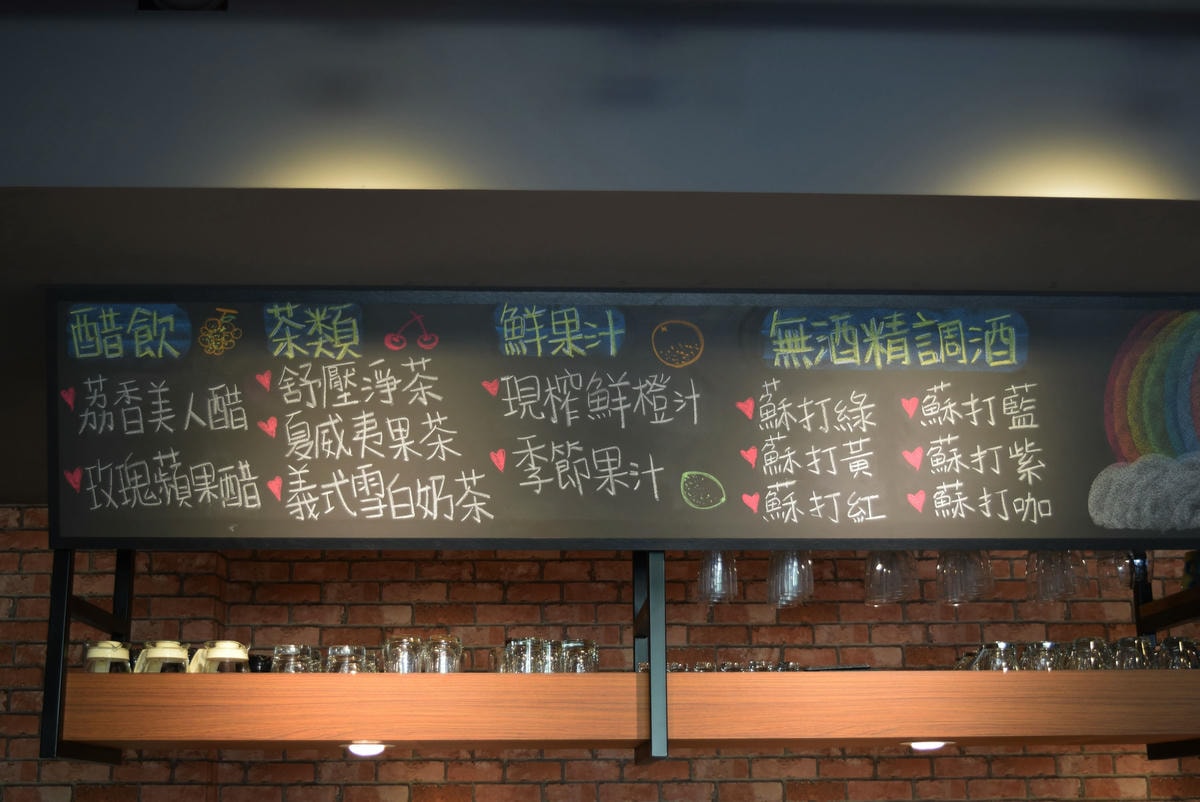 醋飲
荔香美人醋
玫瑰蘋果醋
茶類
舒壓淨茶
夏威夷果茶
義式雪白奶茶
鮮果汁
現榨鮮橙汁
季節果汁
無酒精調酒
蘇打綠
蘇打黃
蘇打紅
蘇打藍
蘇打紫
蘇打咖